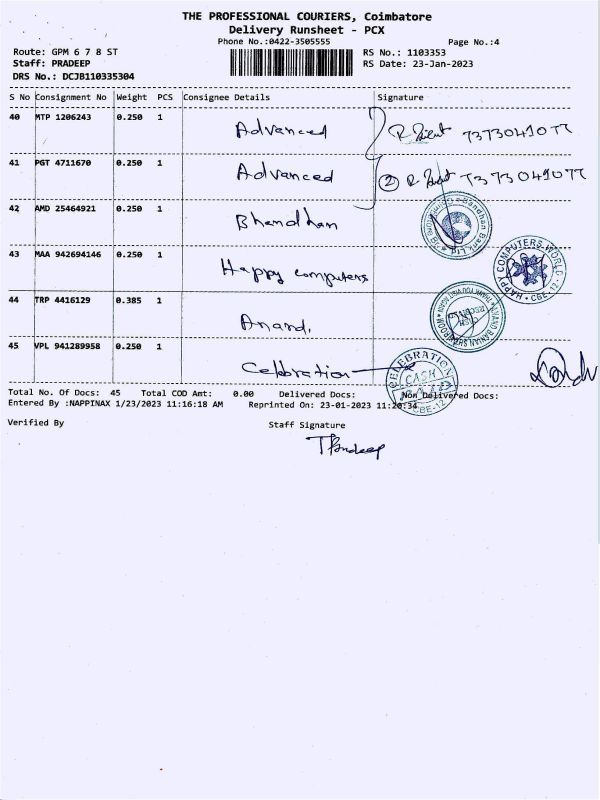 THE PROFESSIONAL COURIERS, Coimbatore
Delivery Runsheet - PCX
Phone No.:0422-3505555 Page No.:4
Route: GPM 6 7 8 ST RS No.: 1103353
Staff: PRADEEP RS Date: 23-Jan-2023
DRS No.: DCJB110335304
S No Consignment No Weight PCS Consignee Details Signature
40 MTP 1206243 0.250 1 Advanced 7373041077
41 PGT 4711670 0.250 1 Advanced 2 7373041077
42 AMD 25464921 0.250 1 Bhandhan Bandhan Bank Ltd
43 MAA 942694146 0.250 1 Happy computers HAPPY COMPUTERS WORLD CBE-12
44 TRP 4416129 0.385 1 Anand. ANAND BANIAN SHOWROOM
45 VPL 941289958 0.250 1 Celebration CELEBRATION CASH CBE-12
Total No. Of Docs: 45 Total COD Amt: 0.00 Delivered Docs: Non Delivered Docs:
Entered By :NAPPINAX 1/23/2023 11:16:18 AM Reprinted On: 23-01-2023 11:20:34
Verified By Staff Signature